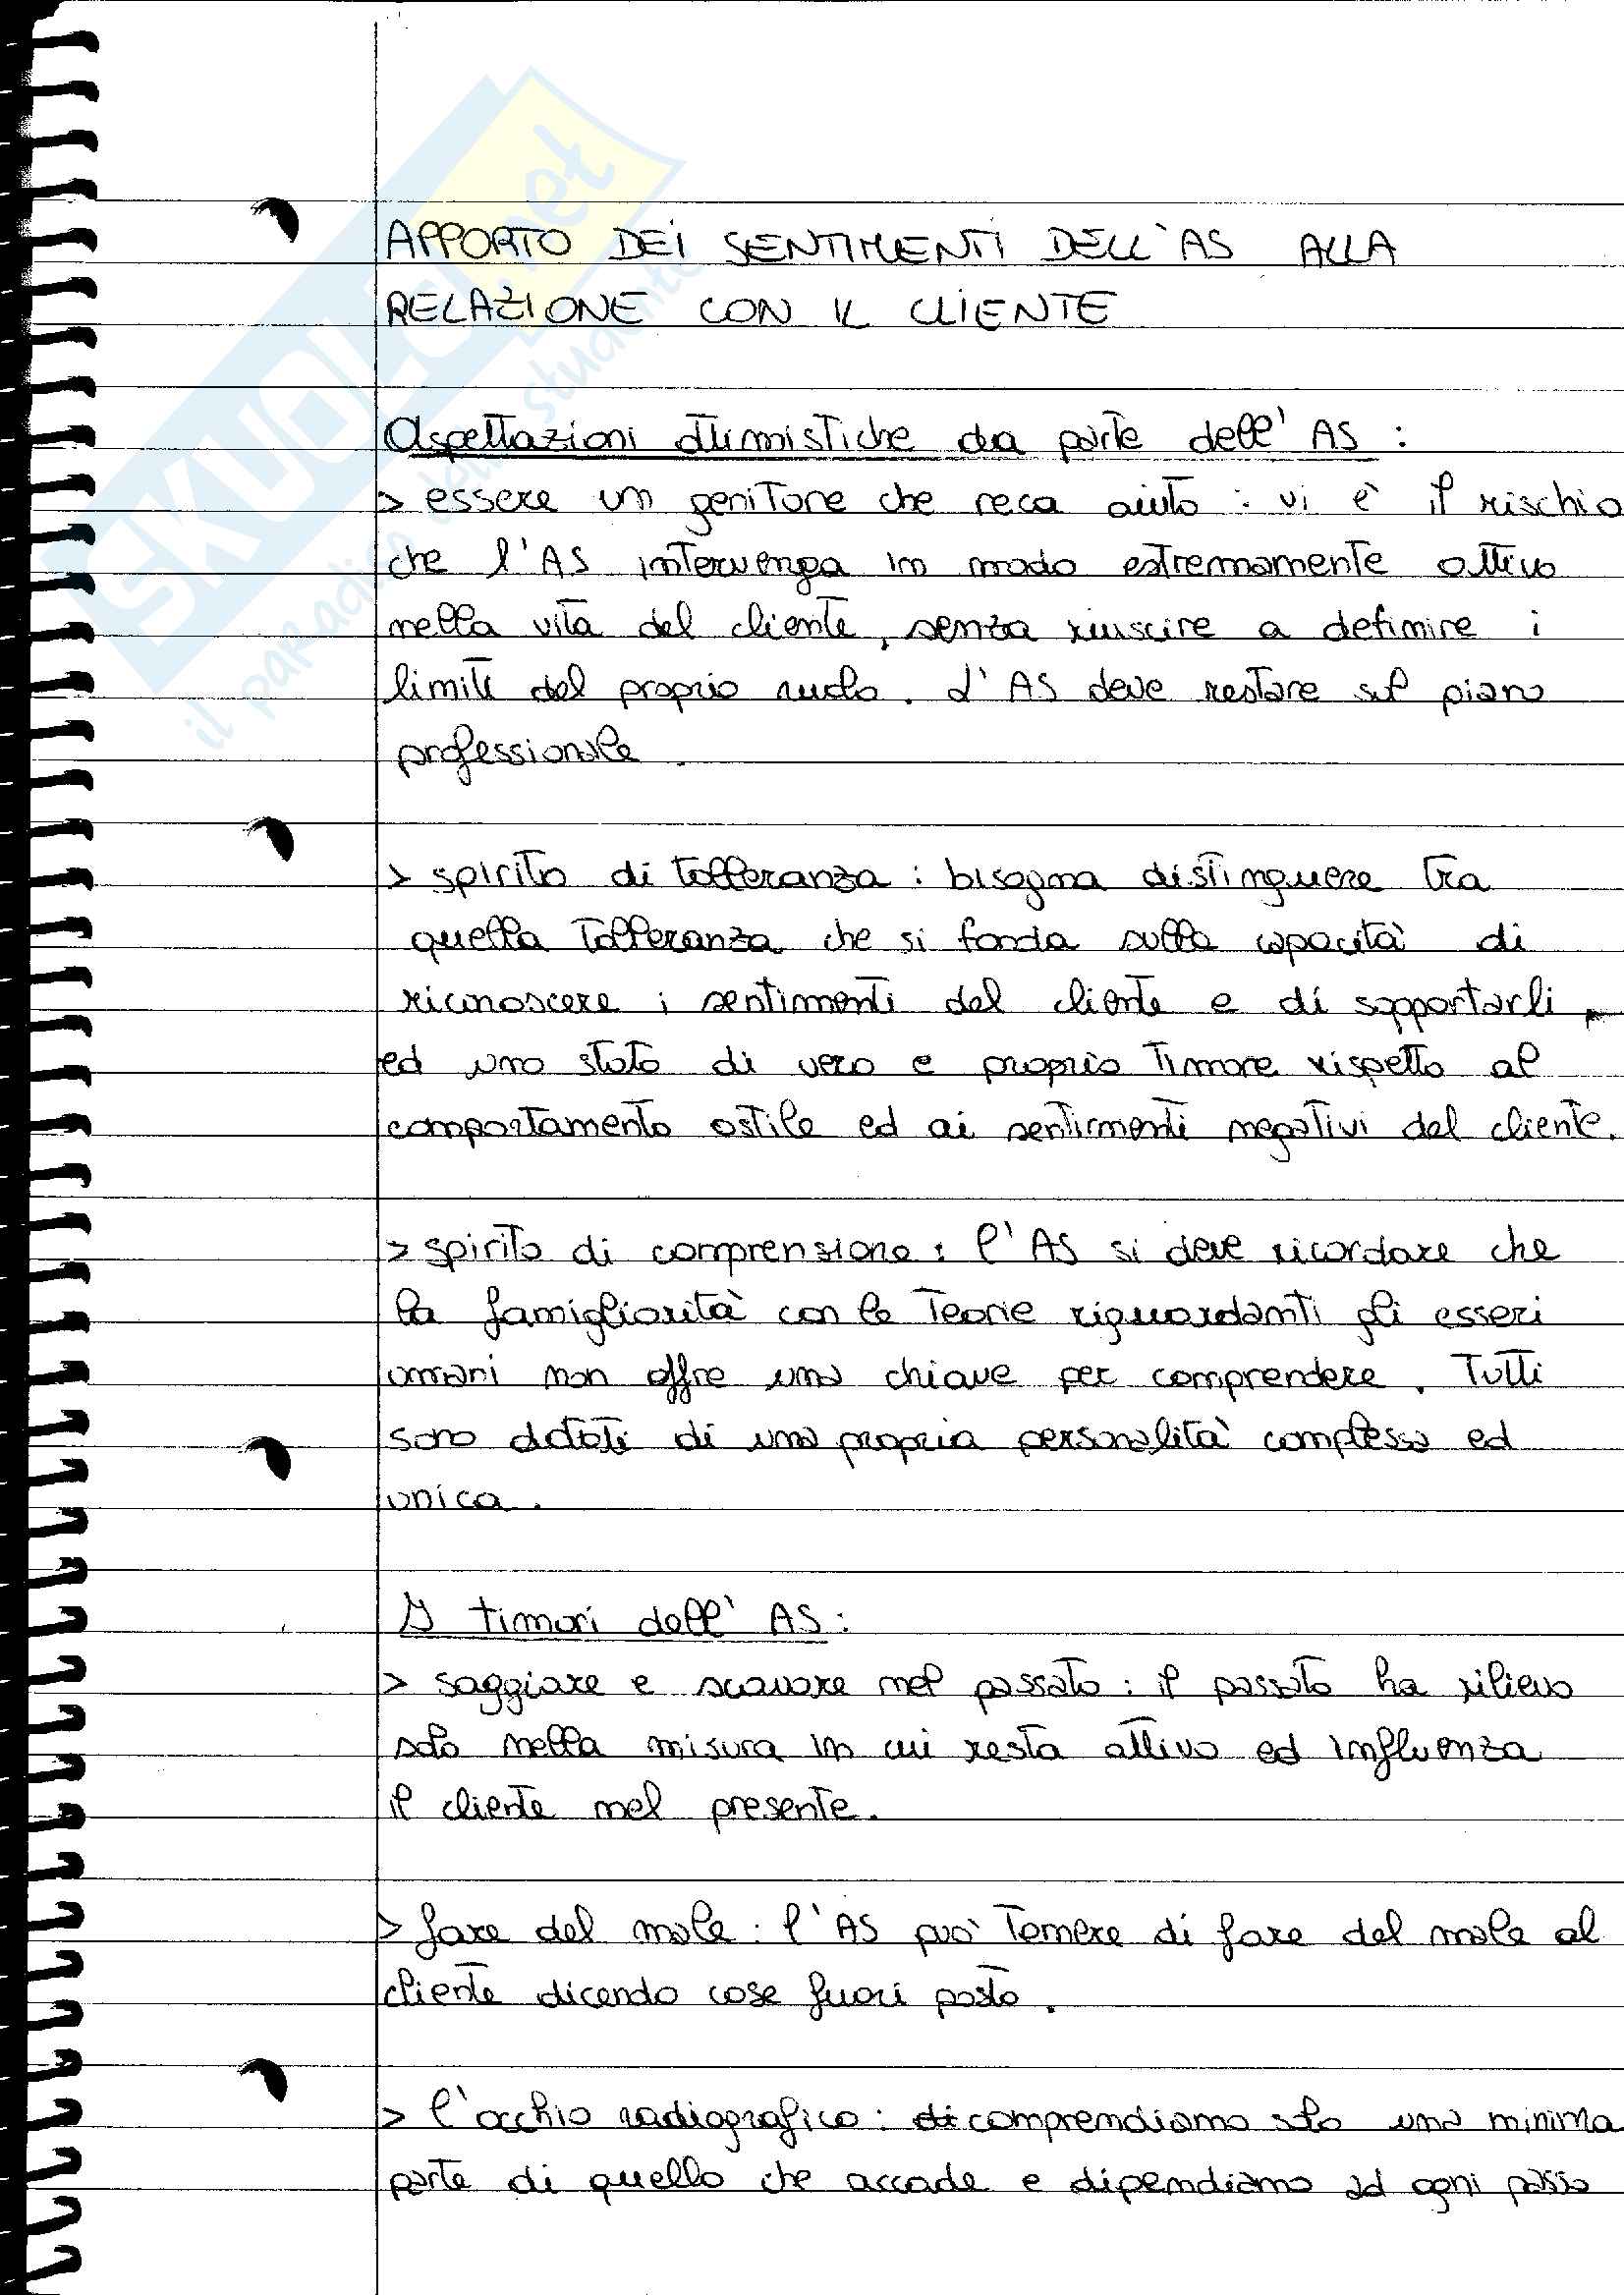 SKUOLA.net
il paradiso dello studente
APPORTO DEI SENTIMENTI DELL'AS ALLA
RELAZIONE CON IL CLIENTE
Aspettazioni ottimistiche da parte dell'AS :
> essere un genitore che reca aiuto : vi è il rischio
che l'AS intervenga in modo estremamente attivo
nella vita del cliente, senza riuscire a definire i
limiti del proprio ruolo. L'AS deve restare sul piano
professionale.
> spirito di tolleranza : bisogna distinguere tra
quella tolleranza che si fonda sulla capacità di
riconoscere i sentimenti del cliente e di sopportarli,
ed uno stato di vero e proprio timore rispetto al
comportamento ostile ed ai sentimenti negativi del cliente.
> spirito di comprensione : l'AS si deve ricordare che
la famigliarità con le teorie riguardanti gli esseri
umani non offre una chiave per comprendere. Tutti
sono dotati di una propria personalità complessa ed
unica.
I timori dell'AS :
> saggiare e scavare nel passato : il passato ha rilievo
solo nella misura in cui resta attivo ed influenza
il cliente nel presente.
> fare del male : l'AS può temere di fare del male al
cliente dicendo cose fuori posto.
> l'occhio radiografico : comprendiamo solo una minima
parte di quello che accade e dipendiamo ad ogni passo